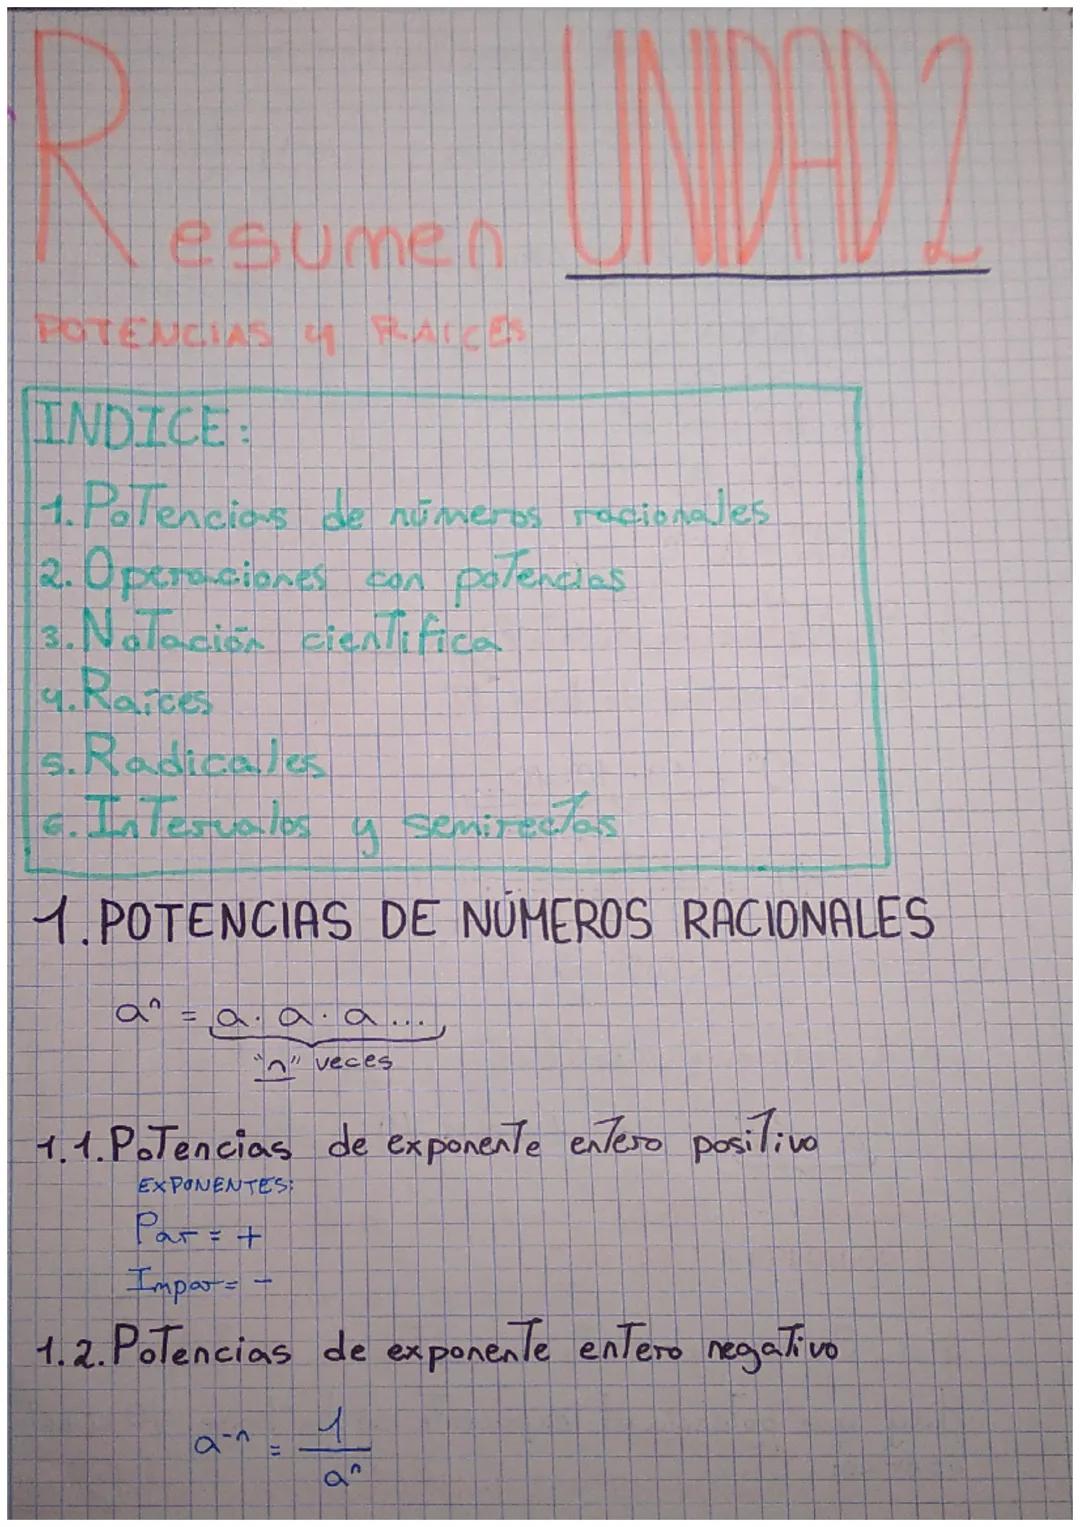 Resumen UNIDAD 2
POTENCIAS y RAICES
INDICE:
1. Potencias de números racionales
2. Operaciones con potencias
3. Notación científica
4. Raíces
5. Radicales
6. Intervalos y semirectas
1. POTENCIAS DE NÚMEROS RACIONALES
aⁿ = a · a · a ...
"n" veces
1.1. Potencias de exponente entero positivo
EXPONENTES:
Par = +
Impar = -
1.2. Potencias de exponente entero negativo
a⁻ⁿ = 1
aⁿ